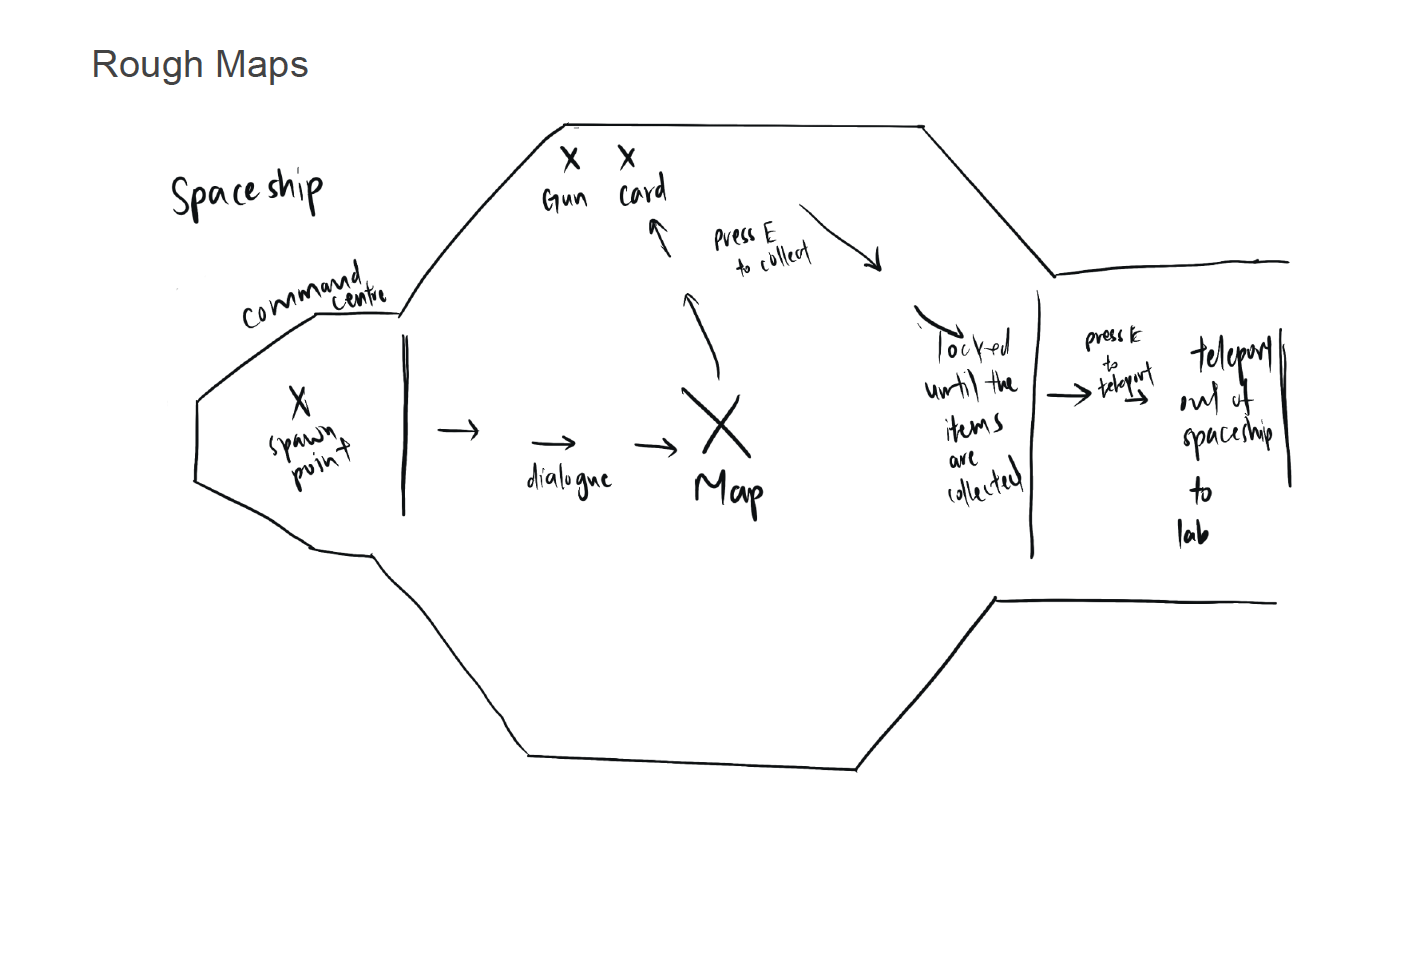 Rough Maps
Spaceship
command
centre
X
spawn
point
X X
Gun Card
press E
to collect
dialogue
X
Map
locked
until the
items
are
collected
press E
to
teleport
teleport
out of
spaceship
to
lab